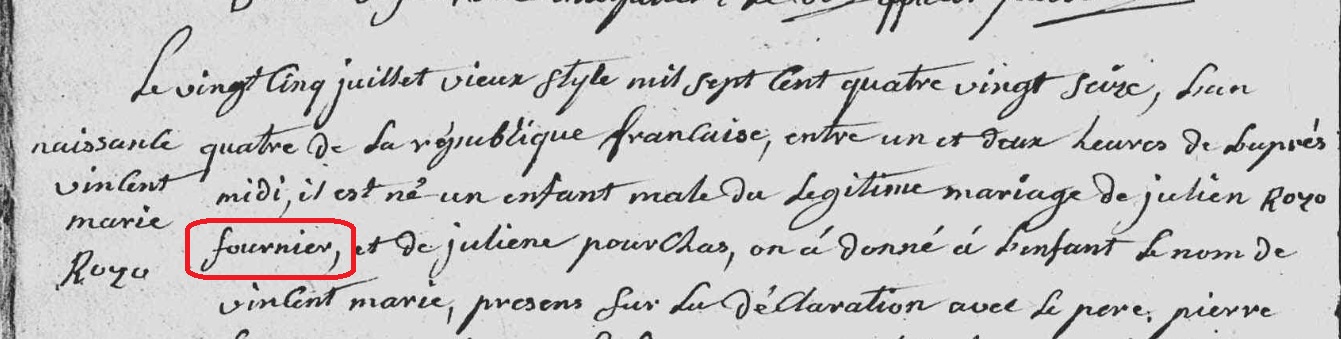 Le vingt Cinq juillet vieux style mil sept Cent quatre vingt seize, L'an
naissance
quatre de La république francaise, entre un et deux heures de L'aprés
vincent
midi, il est né un enfant male du Legitime mariage de julien Rozo
marie
fournier, et de juliene pourchas, on á donné á L'enfant Le nom de
Rozo
vincent marie, presens sur La déClaration avec Le pere, pierre